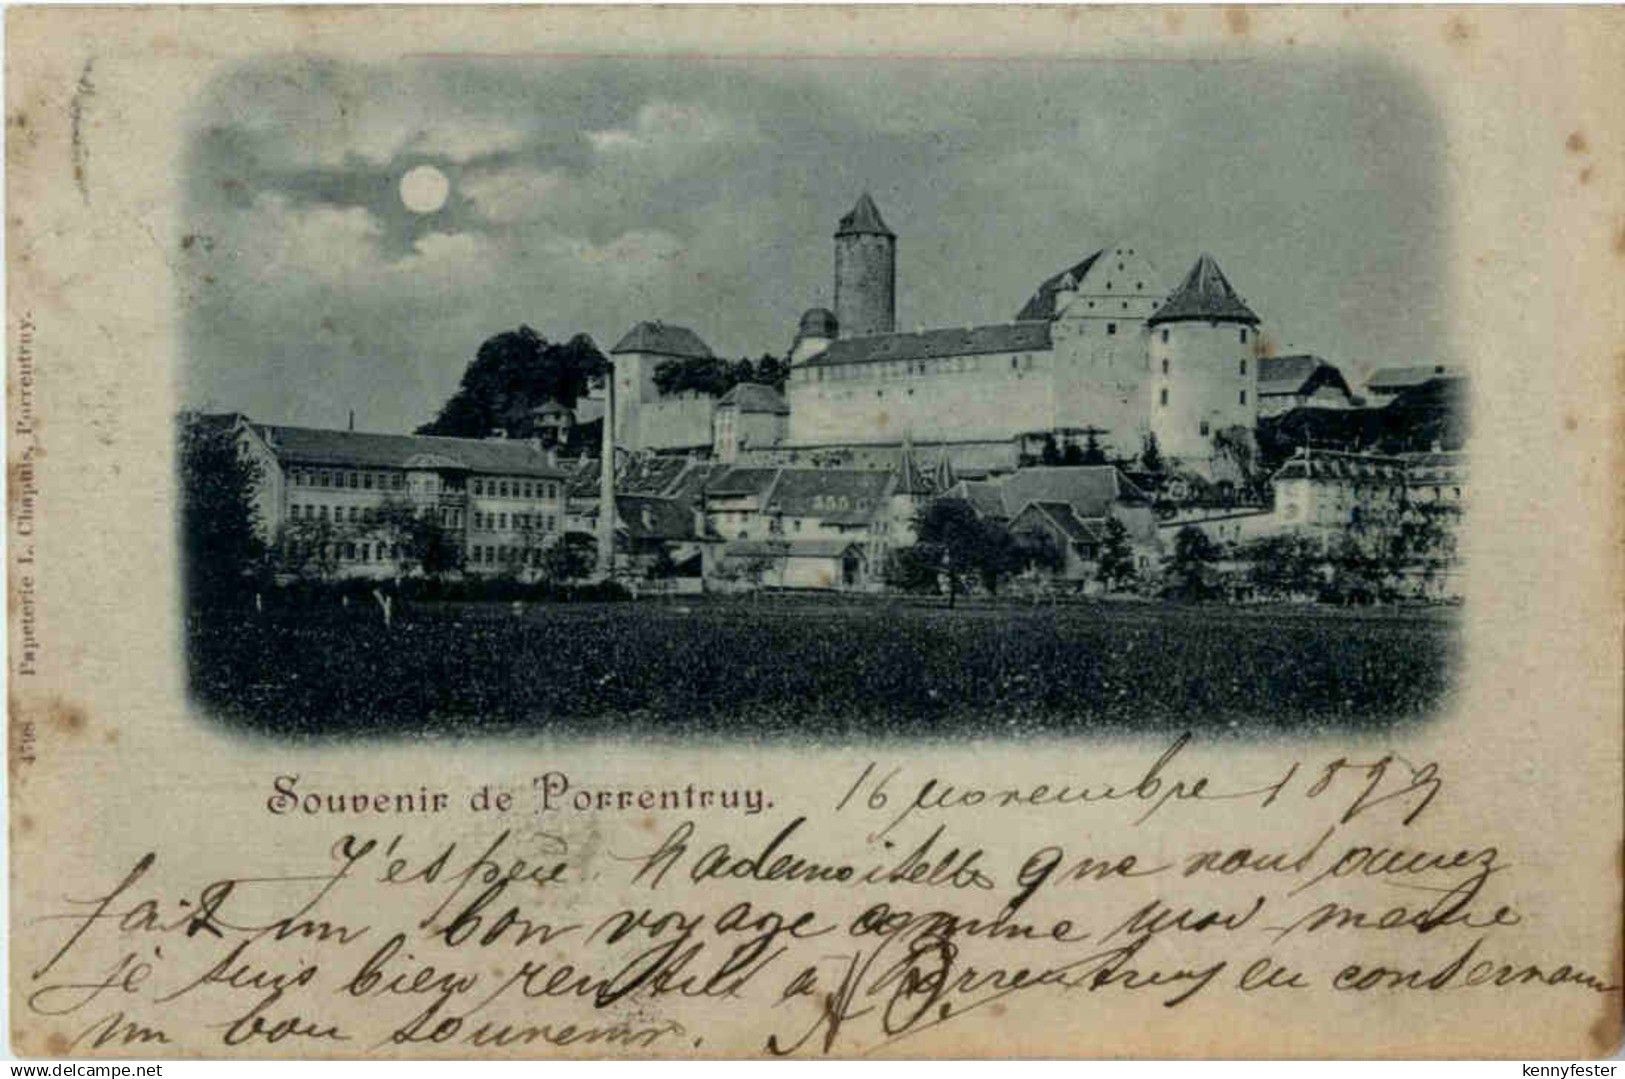 4798 Papeterie L. Chapuis, Porrentruy.
Souvenir de Porrentruy.
16 Novembre 1899
J'espère Mademoiselle que vous avez
fait un bon voyage comme moi-même
je suis bien rentré à Porrentruy en conservant
un bon souvenir.
www.delcampe.net
kennyfester